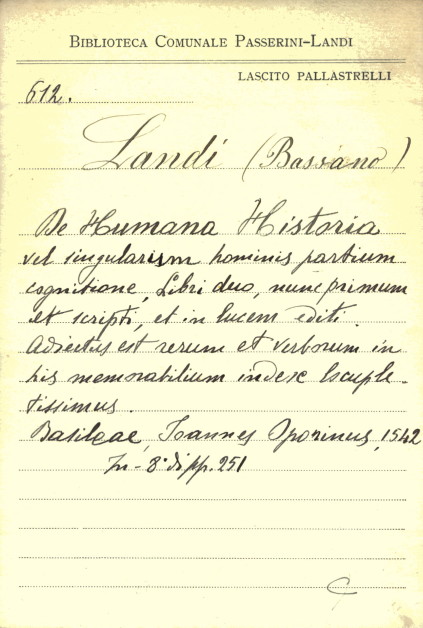 BIBLIOTECA COMUNALE PASSERINI-LANDI
LASCITO PALLASTRELLI
612.
Landi (Bassano)
De Humana Historia
vel singularism hominis partium
cognitione, Libri duo, nunc primum
et scripti, et in lucem editi.
Adiectus est rerum et verborum in
his memorabilium index locuple-
tissimus.
Basileae, Joannes Oporinus, 1542
In-8° di pp. 251
C